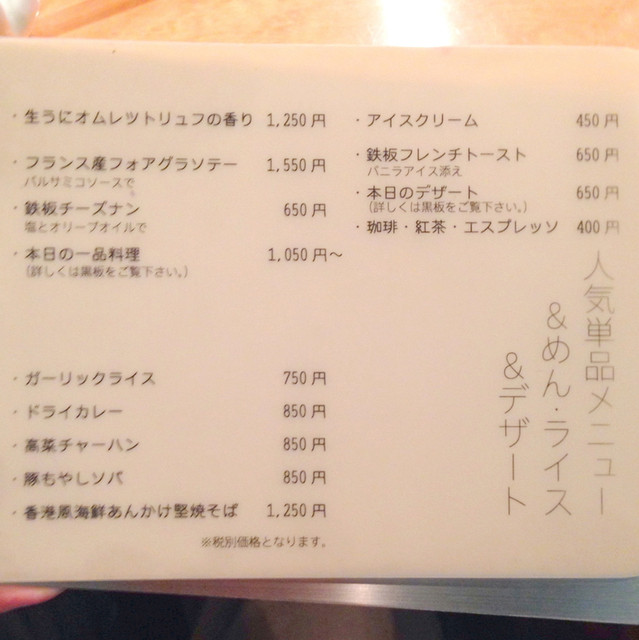 ・生うにオムレットリュフの香り 1,250円
・フランス産フォアグラソテー 1,550円
バルサミコソースで
・鉄板チーズナン 650円
塩とオリーブオイルで
・本日の一品料理 1,050円〜
（詳しくは黒板をご覧下さい。）
・ガーリックライス 750円
・ドライカレー 850円
・高菜チャーハン 850円
・豚もやしソバ 850円
・香港風海鮮あんかけ堅焼そば 1,250円
※税別価格となります。
・アイスクリーム 450円
・鉄板フレンチトースト 650円
バニラアイス添え
・本日のデザート 650円
（詳しくは黒板をご覧下さい。）
・珈琲・紅茶・エスプレッソ 400円
人気単品メニュー
&めん・ライス
&デザート